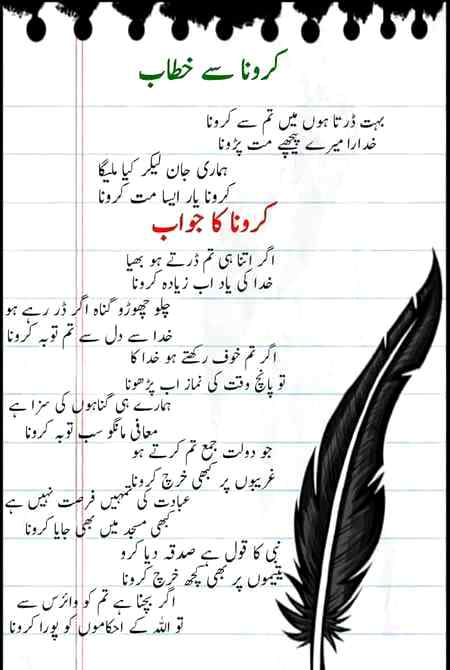 کرونا سے خطاب
بہت ڈرتا ہوں میں تم سے کرونا
خدارا میرے پیچھے مت پڑونا
ہماری جان لیکر کیا ملیگا
کرونا یار ایسا مت کرونا
کرونا کا جواب
اگر اتنا ہی تم ڈرتے ہو بھیا
خدا کی یاد اب زیادہ کرونا
چلو چھوڑو گناہ اگر ڈر رہے ہو
خدا سے دل سے تم توبہ کرونا
اگر تم خوف رکھتے ہو خدا کا
تو پانچ وقت کی نماز اب پڑھونا
ہمارے ہی گناہوں کی سزا ہے
معافی مانگو سب توبہ کرونا
جو دولت جمع تم کرتے ہو
غریبوں پر کبھی خرچ کرونا
عبادت کی تمہیں فرصت نہیں ہے
کبھی مسجد میں بھی جایا کرونا
نبی کا قول ہے صدقہ دیا کرو
یتیموں پر بھی کچھ خرچ کرونا
اگر بچنا ہے تم کو وائرس سے
تو اللہ کے احکاموں کو پورا کرونا